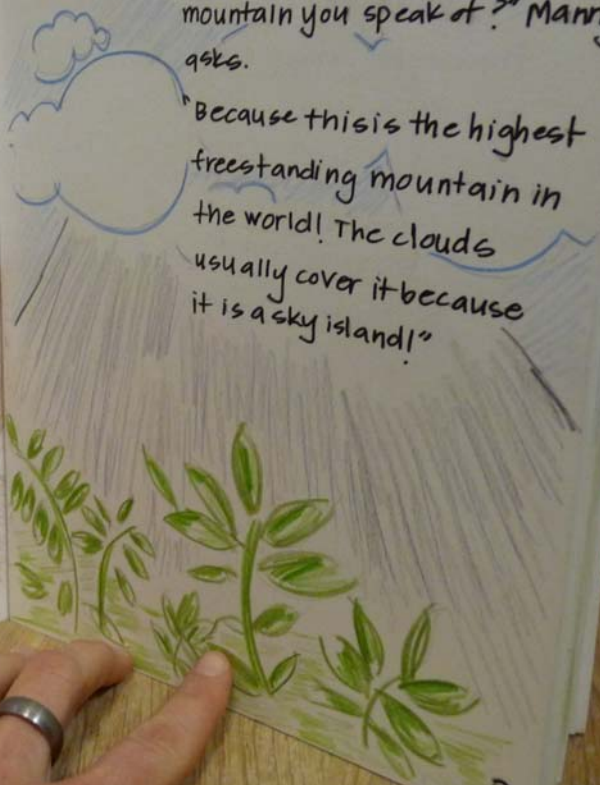 mountain you speak of?" Mann
asks.
"Because this is the highest
freestanding mountain in
the world! The clouds
usually cover it because
it is a sky island!"